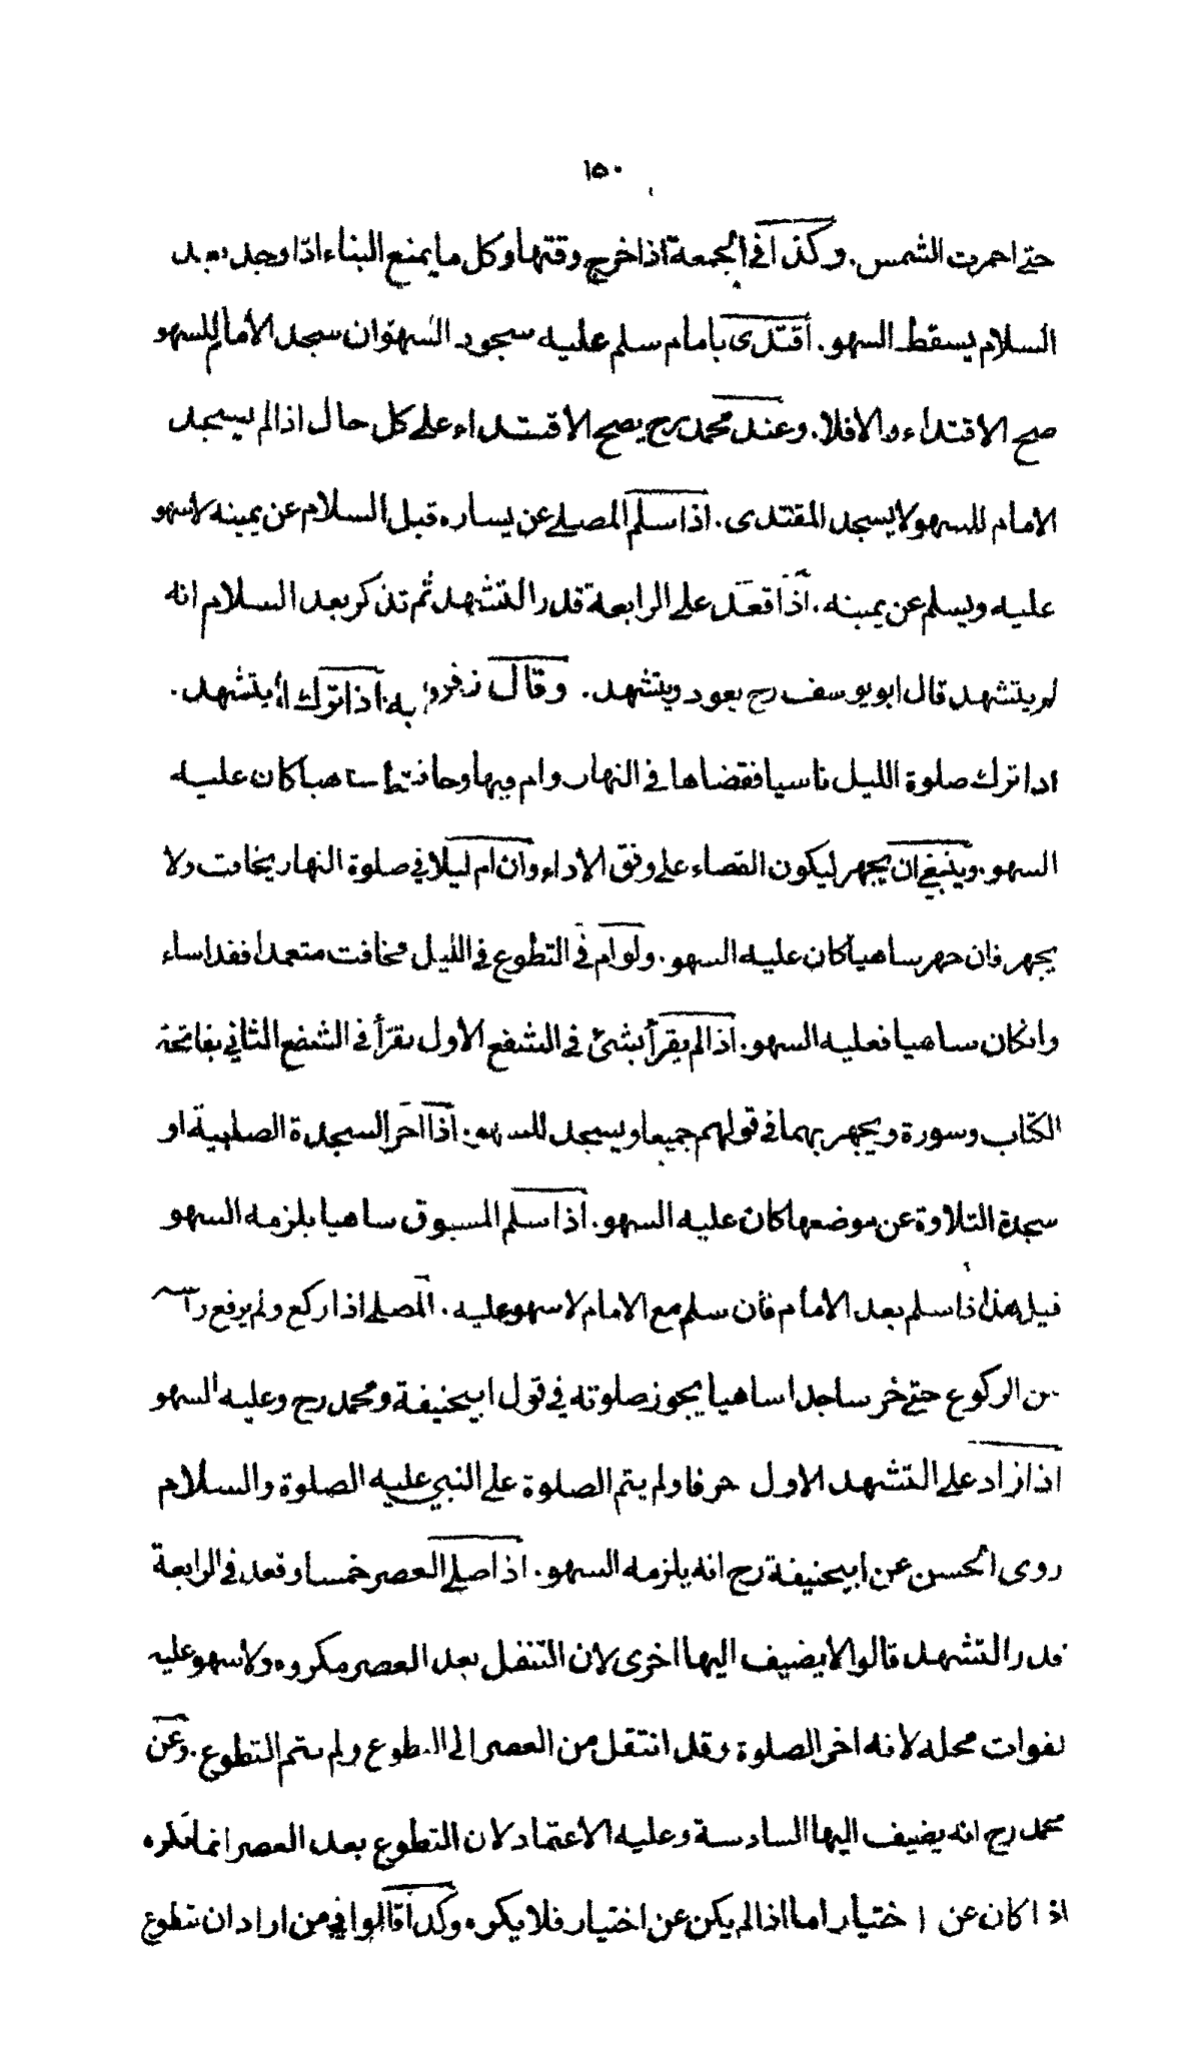 ١٥٠
حتى احمرت الشمس. وكذا في الجمعة اذا خرج وقتها وكل ما يمنع البناء اذا وجد بعد
السلام يسقط السهو. اقتدى بامام سلم عليه سجود السهو ان سجد الامام للسهو
صح الاقتداء والا فلا. وعند محمد رح يصح الاقتداء على كل حال اذا لم يسجد
الامام للسهو لا يسجد المقتدى. اذا سلم المصلى عن يساره قبل السلام عن يمينه لا سهو
عليه ويسلم عن يمينه. اذا قعد على الرابعة قدر التشهد ثم تذكر بعد السلام انه
لم يتشهد قال ابو يوسف رح يعود ويتشهد. وقال زفر به اذا ترك لا يتشهد.
اذا ترك صلوة الليل ناسيا فقضاها في النهار وام فيها وخافت ساهيا كان عليه
السهو. وينبغي ان يجهر ليكون القضاء على وفق الاداء وان ام ليلا في صلوة النهار يخافت ولا
يجهر فان جهر ساهيا كان عليه السهو. ولو ام في التطوع في الليل فخافت متعمدا فقد اساء
وانكان ساهيا فعليه السهو. اذا لم يقرأ بشئ في الشفع الاول يقرأ في الشفع الثاني بفاتحة
الكتاب وسورة ويجهر بهما في قولهم جميعا ويسجد للسهو. اذا اخر السجدة الصلبية او
سجدة التلاوة عن موضعها كان عليه السهو. اذا سلم المسبوق ساهيا يلزمه السهو
قيل هذا اذا سلم بعد الامام فان سلم مع الامام لا سهو عليه. المصلى اذا ركع ولم يرفع رأسه
من الركوع حتى خر ساجدا ساهيا يجوز صلوته في قول ابيحنيفة ومحمد رح وعليه السهو
اذا زاد على التشهد الاول حرفا ولم يتم الصلوة على النبي عليه الصلوة والسلام
روى الحسن عن ابيحنيفة رح انه يلزمه السهو. اذا صلى العصر خمسا وقعد في الرابعة
قدر التشهد قالوا لا يضيف اليها اخرى لان التنفل بعد العصر مكروه ولا سهو عليه
لفوات محله لانه اخر الصلوة وقد انتقل من العصر الى التطوع ولم يتم التطوع. وعن
محمد رح انه يضيف اليها السادسة وعليه الاعتماد لان التطوع بعد العصر انما يكره
اذا كان عن اختيار اما اذا لم يكن عن اختيار فلا يكره وكذا قالوا في من اراد ان يتطوع